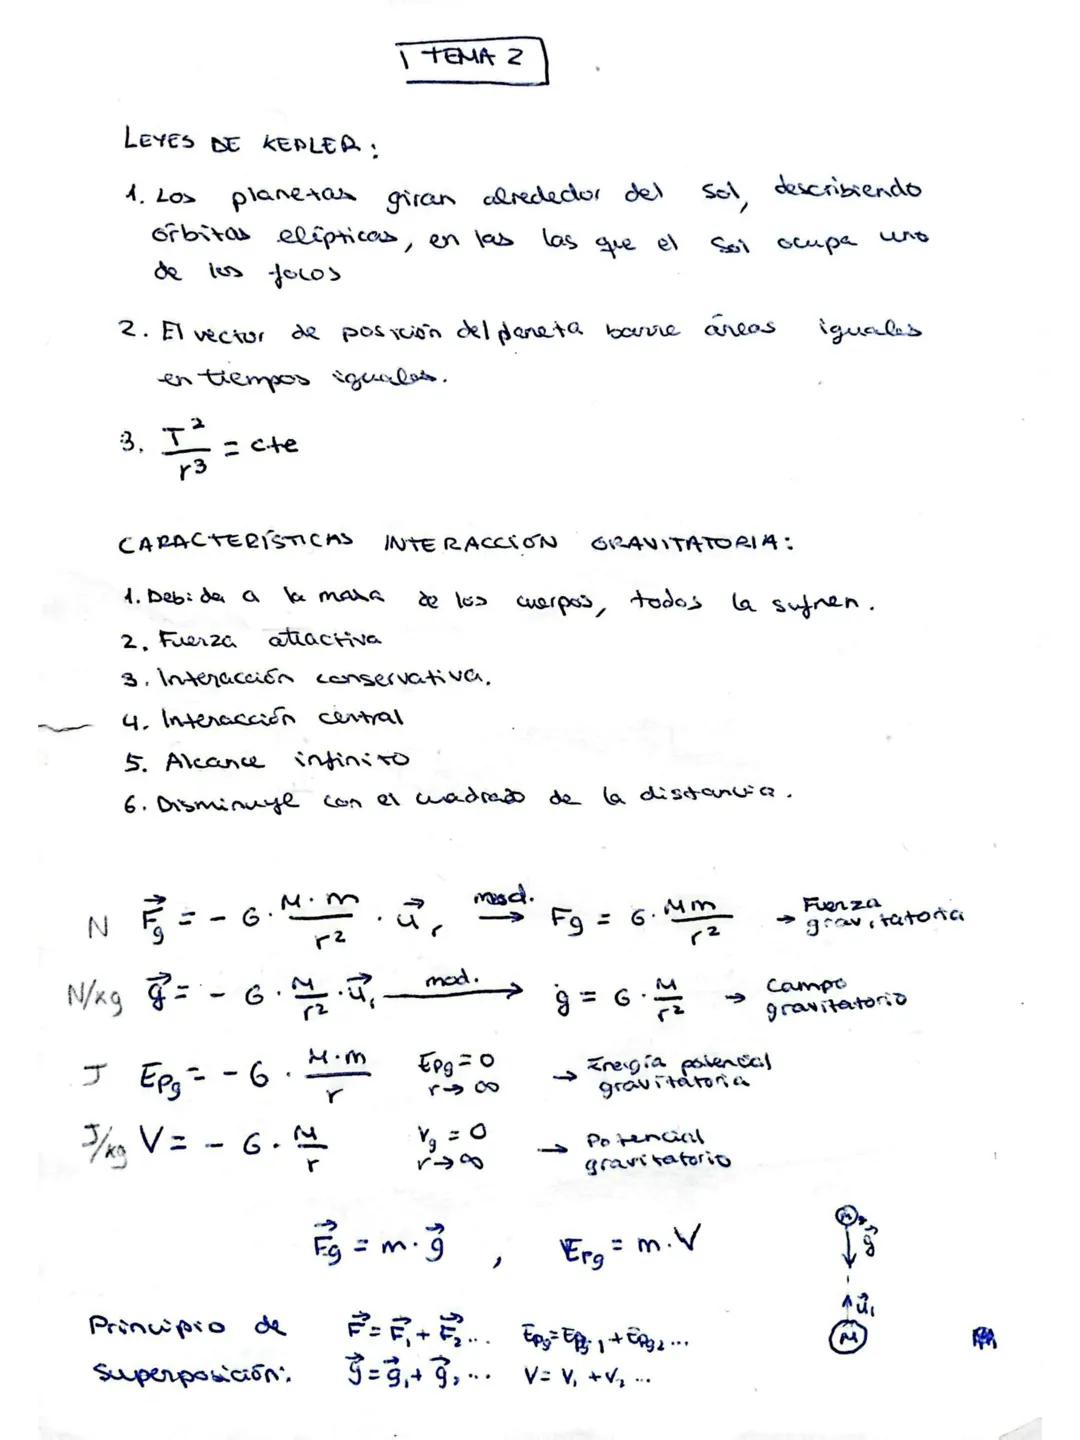 TEMA 2
LEYES DE KEPLER:
1. Los planetas giran alrededor del Sol, describiendo
órbitas elípticas, en las las que el Sol ocupa uno
de los focos
2. El vector de posición del planeta barre áreas iguales
en tiempos iguales.
3. T²/r³ = cte
CARACTERÍSTICAS INTERACCIÓN GRAVITATORIA:
1. Debida a la masa de los cuerpos, todos la sufren.
2. Fuerza atractiva
3. Interacción conservativa.
4. Interacción central
5. Alcance infinito
6. Disminuye con el cuadrado de la distancia.
N F⃗g = - G · M·m/r² · u⃗r mod. → Fg = G · Mm/r² → Fuerza gravitatoria
N/kg g⃗ = - G · M/r² · u⃗r mod. → g = G · M/r² → Campo gravitatorio
J Epg = - G · M·m/r Epg = 0 r → ∞ → Energía potencial gravitatoria
J/kg V = - G · M/r Vg = 0 r → ∞ → Potencial gravitatorio
F⃗g = m · g⃗ , Epg = m · V
m
g⃗
u⃗r
M
Principio de F⃗ = F⃗₁ + F⃗₂ ... Epg = Epg₁ + Epg₂ ...
Superposición: g⃗ = g⃗₁ + g⃗₂ ... V = V₁ + V₂ ...